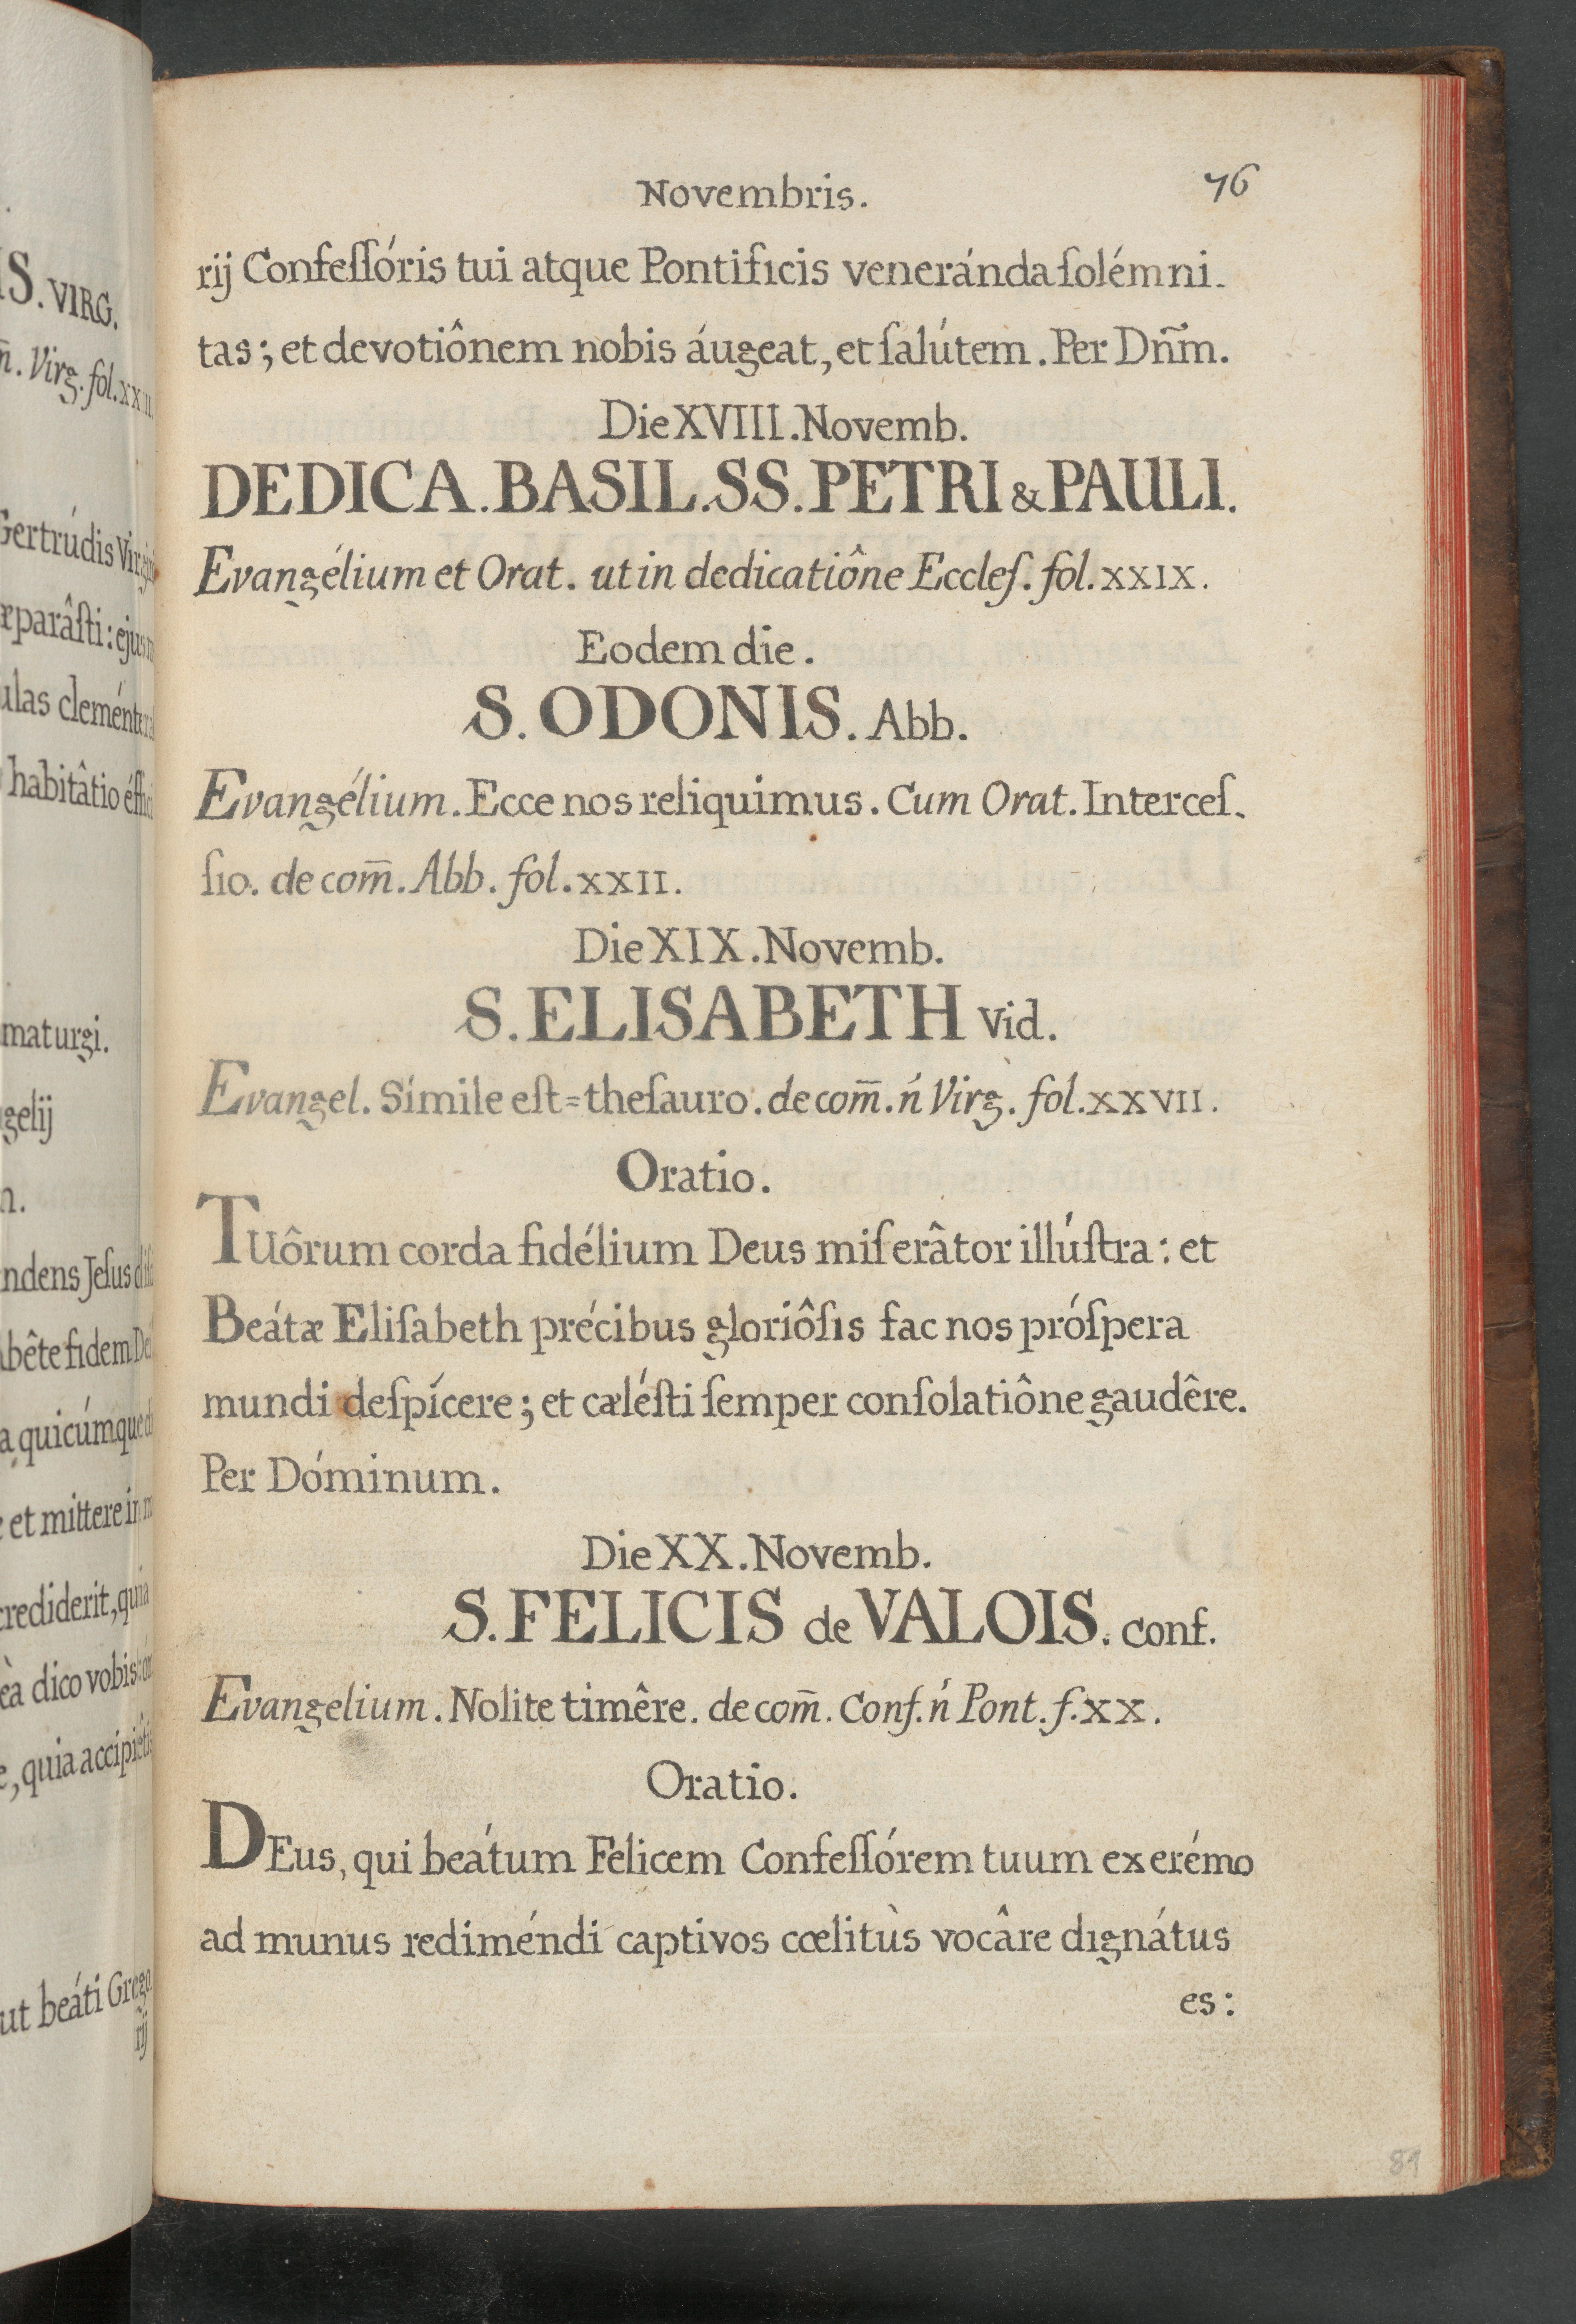 S. VIRG.
Virg. fol.
Gertrúdis
ulas
habitâtio
maturgi.
gelij
ndens Jeſus
bête fidem
a quicúmque
et mittere
crediderit, quia
eà dico vobis
quia
ut beáti Grego
rij
Novembris.
76
rij Confeſſóris tui atque Pontificis veneránda ſolémni-
tas; et devotiônem nobis áugeat, et ſalútem. Per Dn̄m.
Die XVIII. Novemb.
DEDICA. BASIL. SS. PETRI & PAULI.
Evangélium et Orat. ut in dedicatiône Eccleſ. fol. XXIX.
Eodem die.
S. ODONIS. Abb.
Evangélium. Ecce nos reliquimus. Cum Orat. Interceſ-
ſio. de com̄. Abb. fol. XXII.
Die XIX. Novemb.
S. ELISABETH Vid.
Evangel. Símile eſt = theſauro. de com̄. ń Virg. fol. XXVII.
Oratio.
Tuôrum corda fidélium Deus miſerâtor illúſtra: et
Beátæ Eliſabeth précibus gloriôſis fac nos próſpera
mundi deſpícere; et cæléſti ſemper conſolatiône gaudêre.
Per Dóminum.
Die XX. Novemb.
S. FELICIS de VALOIS. Conf.
Evangelium. Nolite timêre. de com̄. Conf. ń Pont. f. XX.
Oratio.
DEus, qui beátum Felicem Confeſſórem tuum ex erémo
ad munus rediméndi captivos cœlitùs vocâre dignátus
es:
89